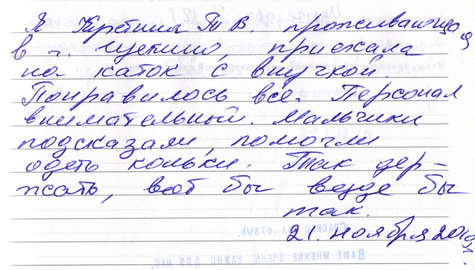 Я Кребина Т В. проживающая
в г. Щекино приехала
на каток с внучкой.
Понравилось всё. Персонал
внимательный. Мальчики
подсказали, помогли
одеть коньки. Так дер-
жать, вот бы везде бы
так.
21. ноября 2019г.
ВАШЕ МНЕНИЕ ОЧЕНЬ ВАЖНО ДЛЯ НАС